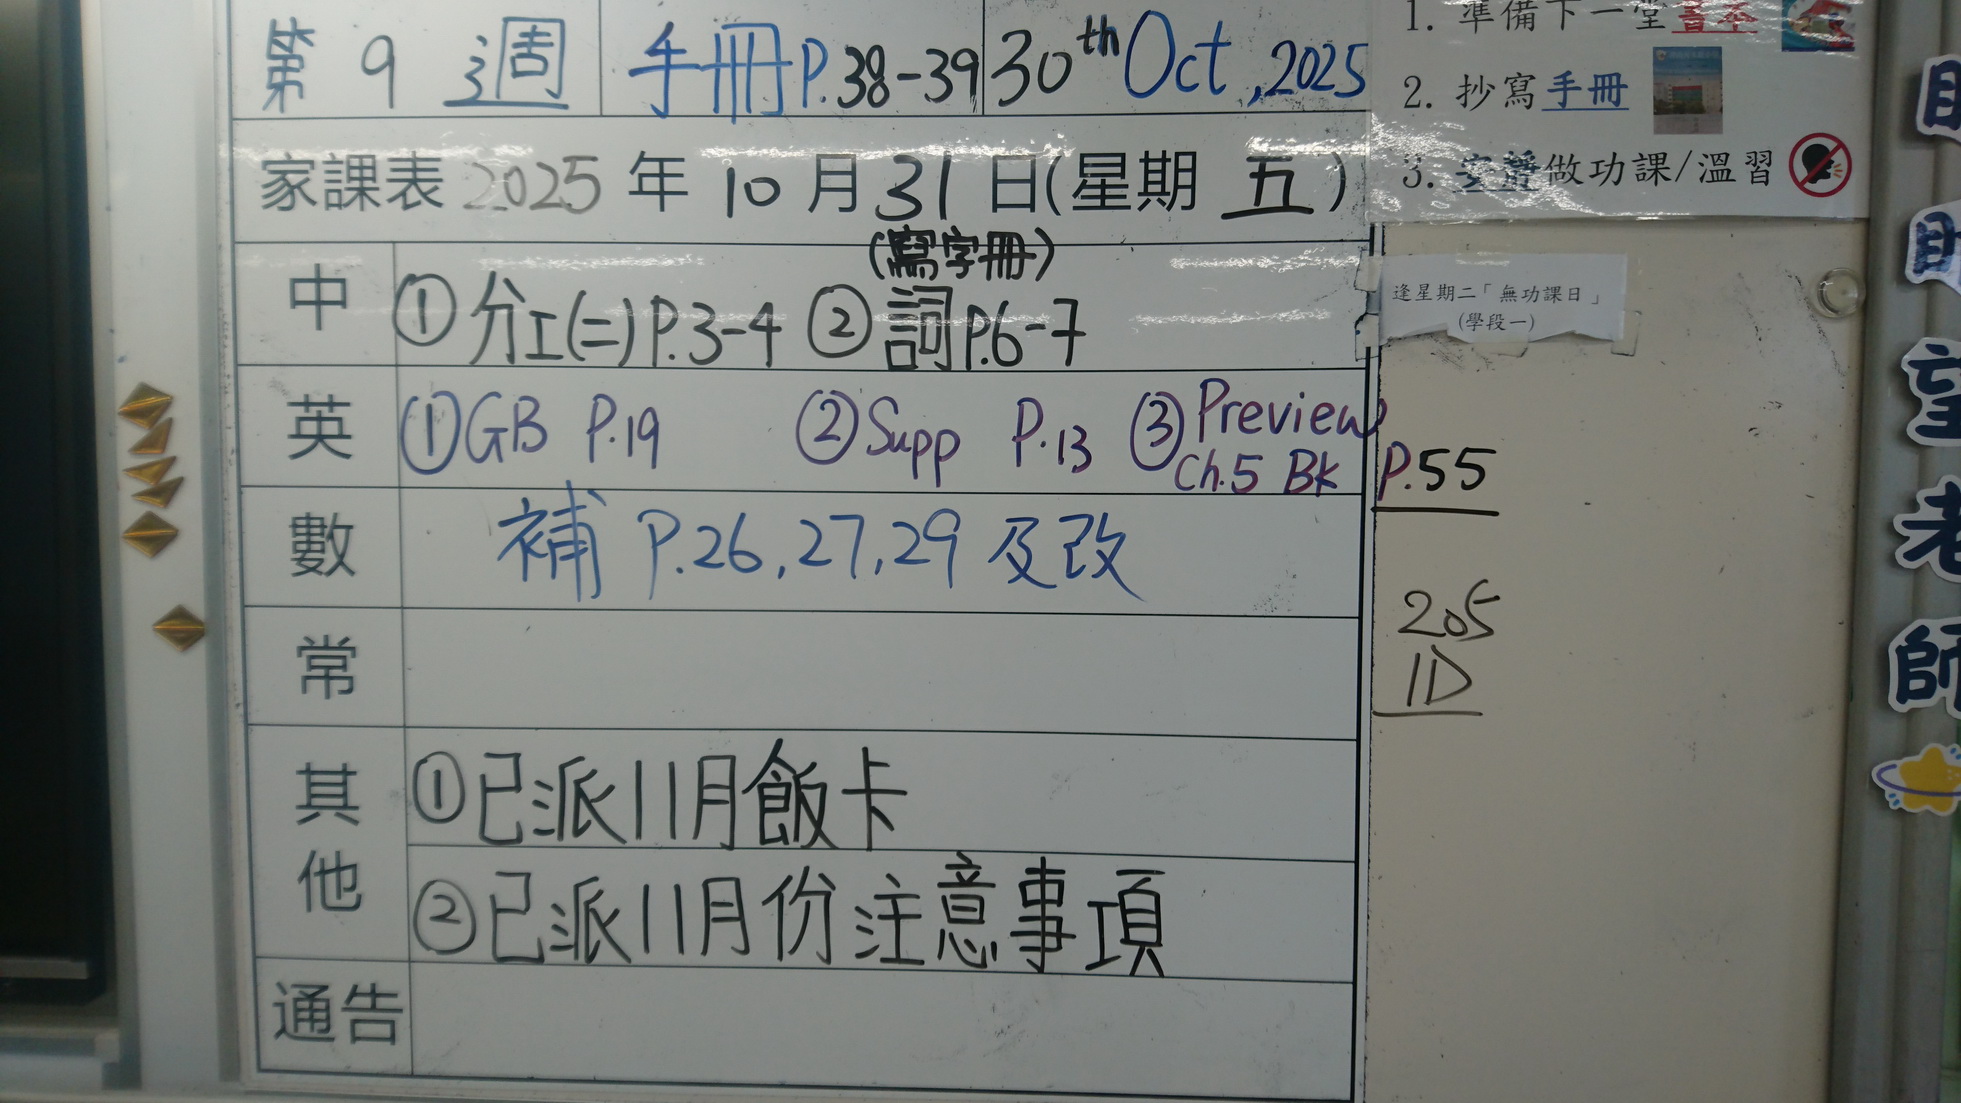 第 9 週 手冊P.38-39 30th Oct, 2025
家課表 2025 年 10 月 31 日(星期 五)
(寫字冊)
中 ① 分工(二) P.3-4 ② 詞P.6-7
英 ①GB P.19 ②Supp P.13 ③Preview
Ch.5 Bk P.55
數 補 P.26,27,29 及改
常
其他 ①已派11月飯卡
②已派11月份注意事項
通告
1. 準備下一堂書本
2. 抄寫手冊
3. 安靜做功課/溫習
逢星期二「無功課日」
(學段一)
205
1D
望老師